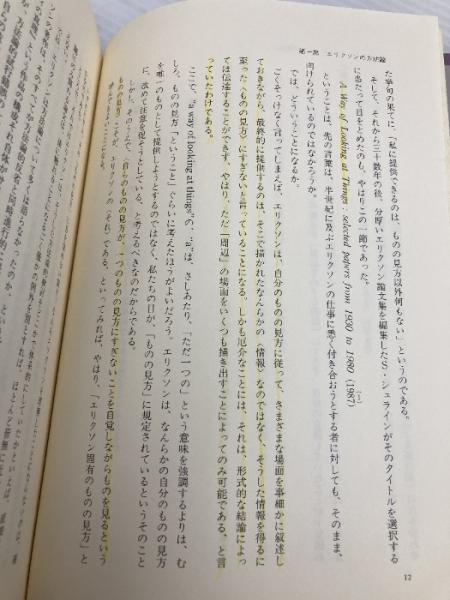 第一部 エリクソンの方法論
た挙句の果てに、「私に提供できるのは、ものの見方以外何もない」というのである。
そして、それから二十数年の後、分厚いエリクソン論文集を編集したS・シュラインがそのタイトルを選択する
に当たって目をとめたのも、やはりこの一節であった。
A Way of Looking at Things : selected papers from 1930 to 1980 (1987)
(1)
ということは、先の言葉は、半世紀に及ぶエリクソンの仕事に悪く付き合おうとする者に対しても、そのまま、
向けられているのではなかろうか。
では、どういうことになるか。
ごくそっけなく言ってしまえば、エリクソンは、自分のものの見方に従って、さまざまな場面を事細かに叙述し
ておきながら、最終的に提供するのは、そこで描かれたなんらかの〈情報〉なのではなく、そうした情報を得るに
至った〈ものの見方〉にすぎないと言っていることになる。しかも厄介なことには、それは、形式的な結論によっ
ては伝達することができず、やはり、ただ「周辺」の場面をいくつも描き出すことによってのみ可能である、と言
っていたわけである。
ここで、"a way of looking at things"の、"a"は、さしあたり、「ただ一つの」という意味を強調するよりは、む
しろ、ものの見方「ということ」ぐらいに考えたほうがよいだろう。エリクソンは、なんらかの自分のものの見方
を唯一のものとして提供しようとするのではなく、私たちの目が、「ものの見方」に規定されているというそのこと
に、改めて注意を促そうとしている、と考えるべきなのだからである。
しかし、そのうえで、自らのものの見方が、一つのものの見方にすぎないことを自覚しながらものを見るという
ものの見方こそが、エリクソンの〈それ〉である、といってみれば、やはり、「エリクソン固有のものの見方」と
12